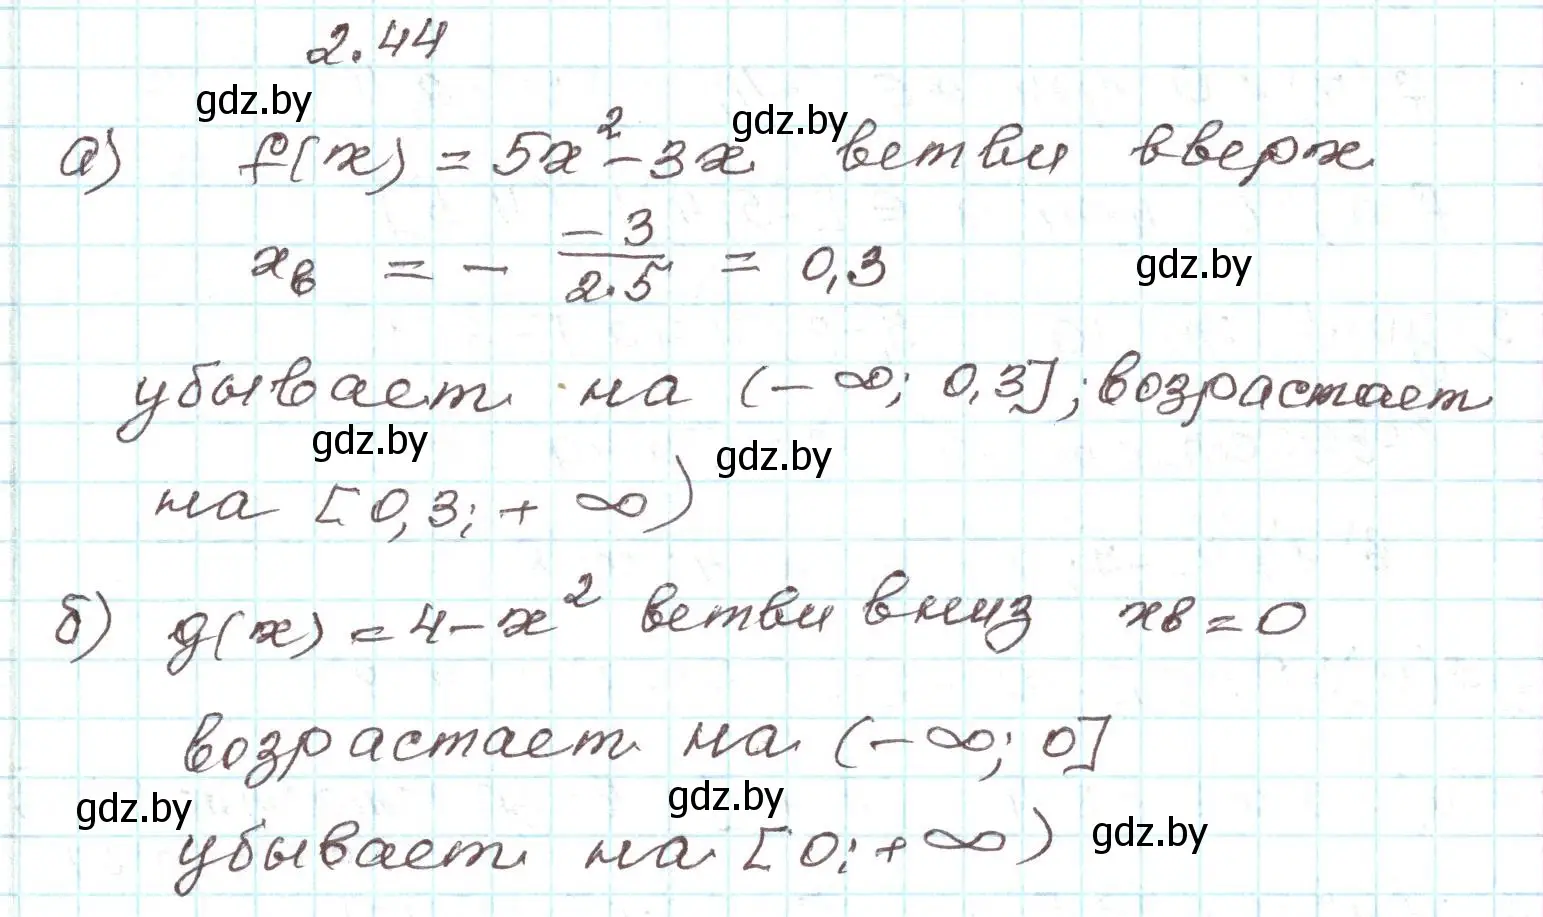 2.44
gdz.by
а) f(x) = 5x² - 3x ветви вверх
gdz.by
x_в = - \frac{-3}{2·5} = 0,3
gdz.by
убывает на (-∞; 0,3]; возрастает
gdz.by
gdz.by
на [0,3; +∞)
б) g(x) = 4 - x² ветви вниз x_в = 0
возрастает на (-∞; 0]
gdz.by
gdz.by
gdz.by
убывает на [0; +∞)